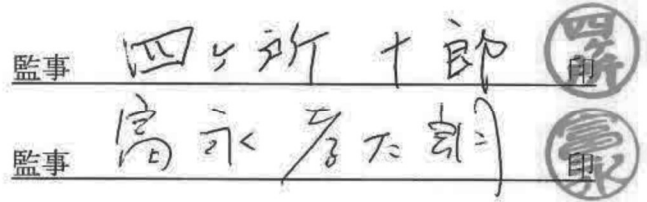 監事 四ヶ所 十郎 印
監事 富永 孝太郎 印